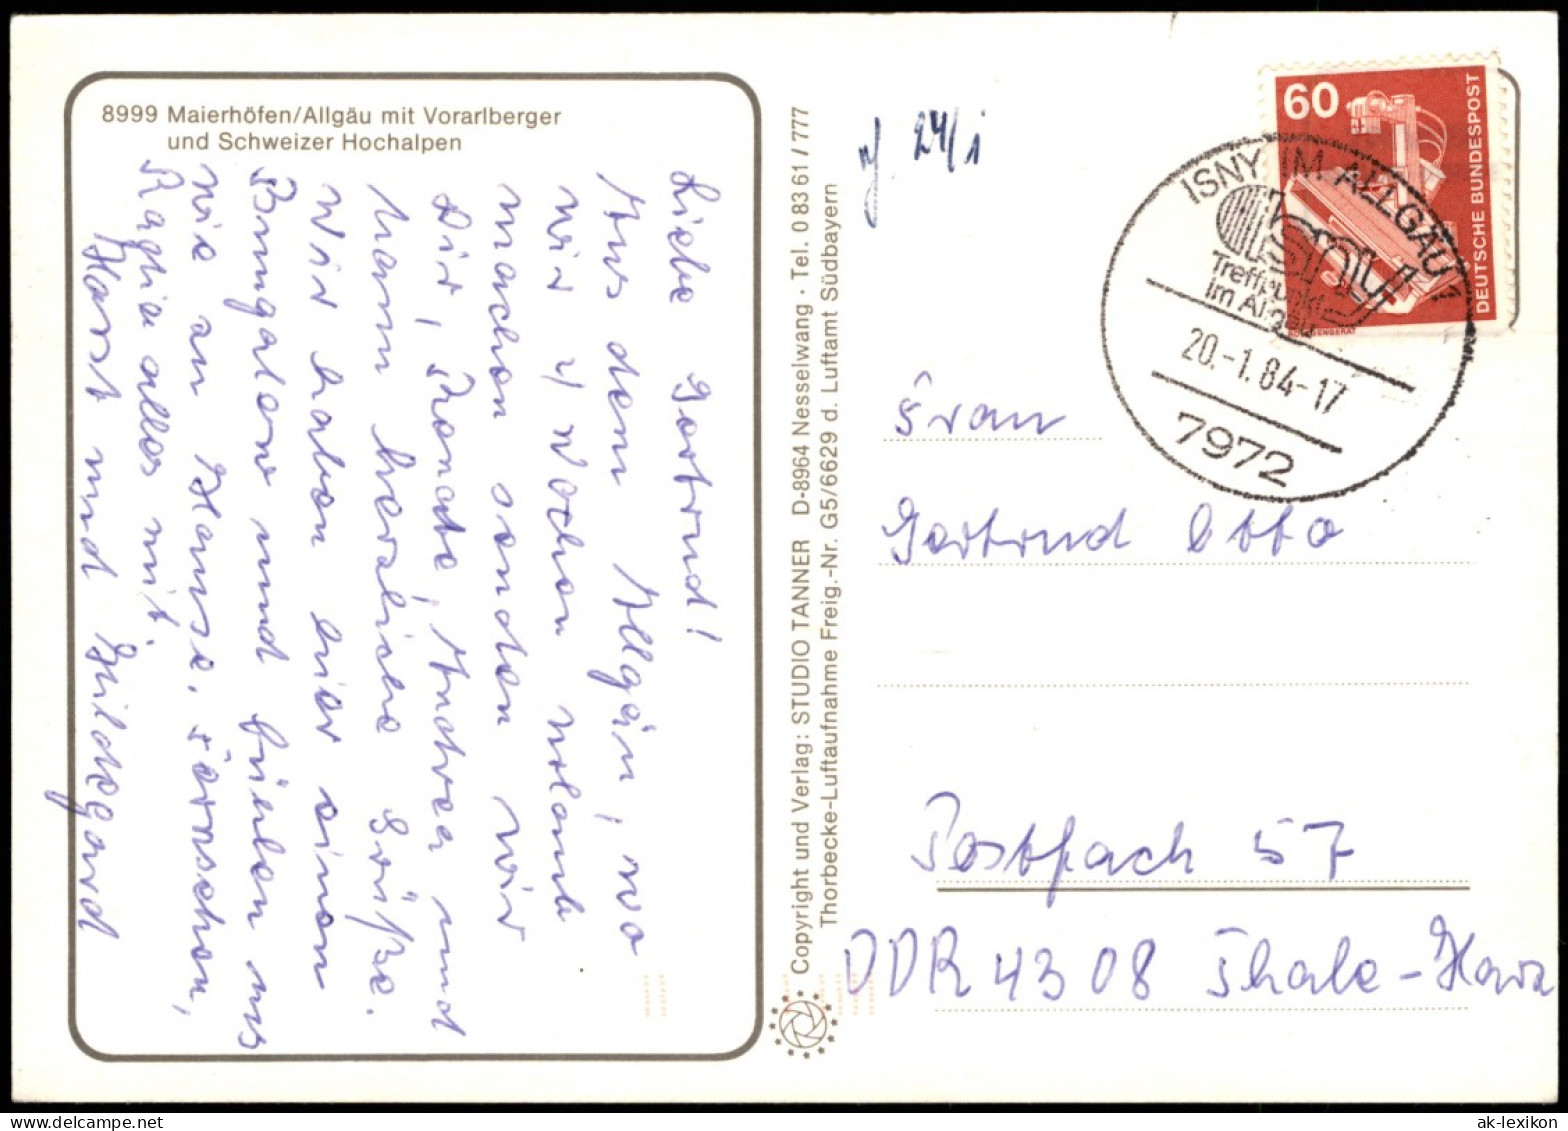 8999 Maierhöfen/Allgäu mit Vorarlberger
und Schweizer Hochalpen
Liebe Gertrud!
Aus dem Allgäu, wo
wir 4 Wochen urlaub
machen senden wir
Dir, Renate, Andrea und
Mann herzliche Grüße.
Wir haben hier einen
Bungalow und fühlen uns
wie zu Hause.
alles mit.
Horst und Hildegard
Copyright und Verlag: STUDIO TANNER D-8964 Nesselwang · Tel. 0 83 61 / 777
Thorbecke-Luftaufnahme Freig.-Nr. G5/6629 d. Luftamt Südbayern
24/1
60
DEUTSCHE BUNDESPOST
ISNY IM ALLGÄU 1
isny
Treffpunkt
im Allgäu
20.-1.84-17
7972
Frau
Gertrud Otto
Postfach 57
DDR 4308 Thale-Harz
ak-lexikon